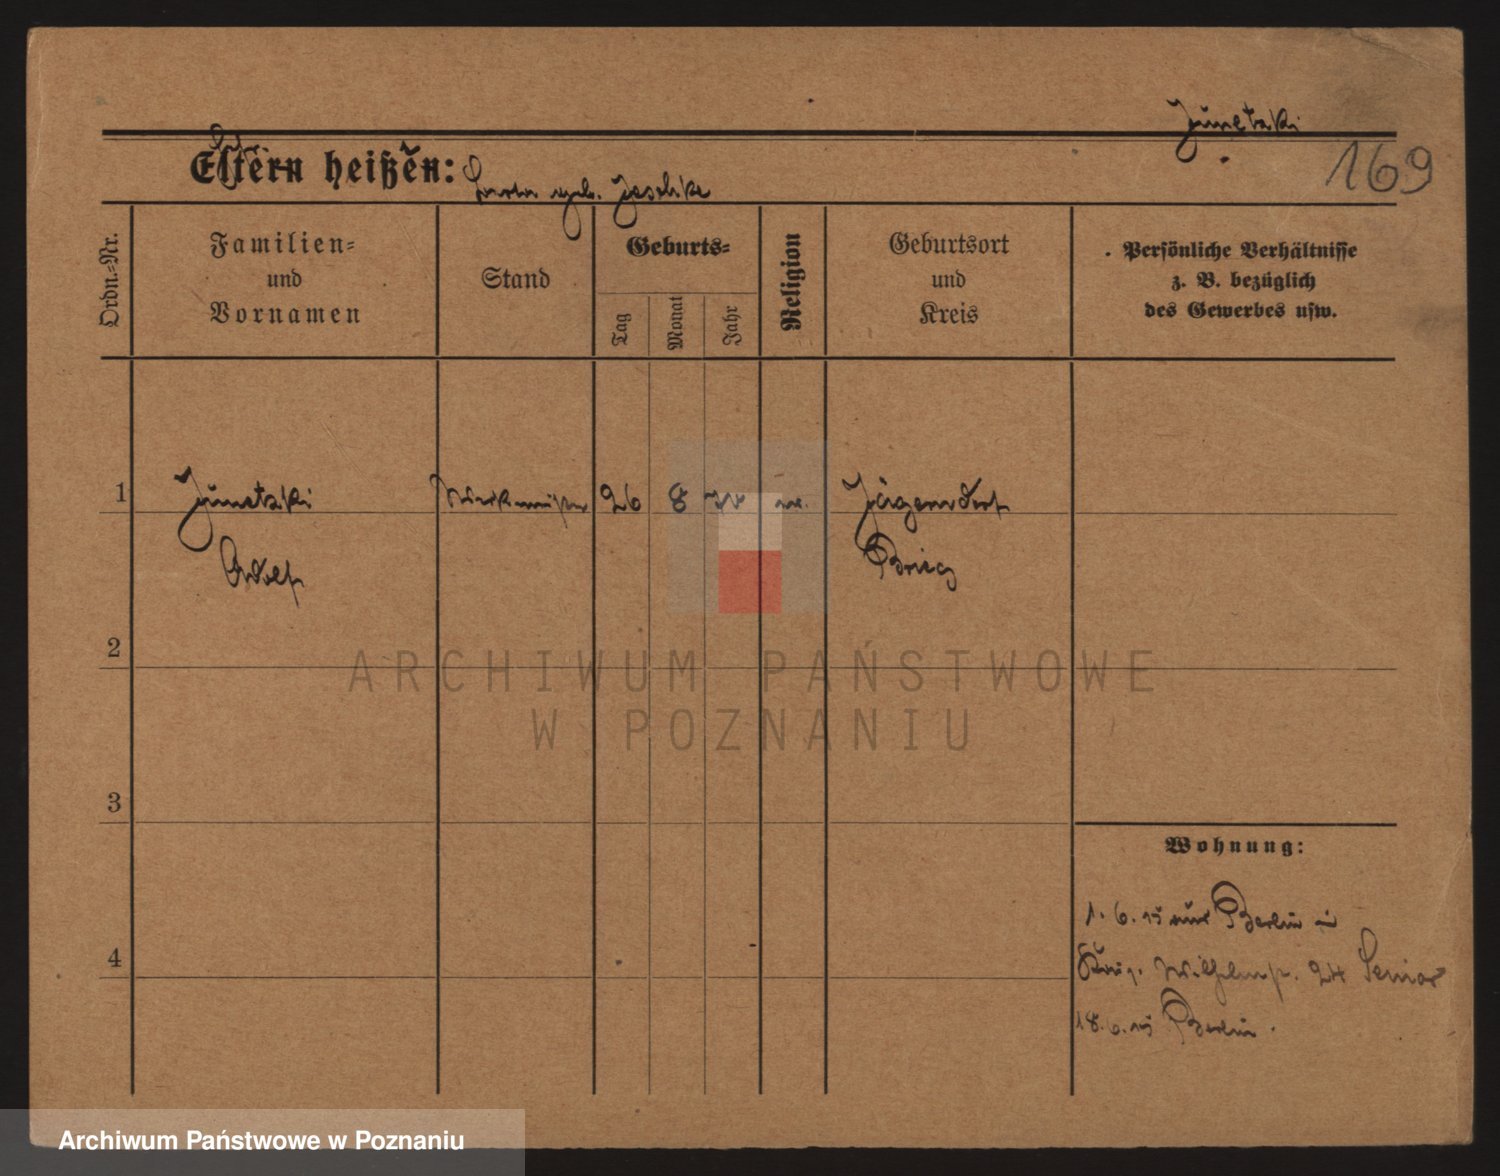 Junetzki
169
Eltern heißen:
geb. Jeschke
Ordn.-Nr.
Familien-
und
Vornamen
Stand
Geburts-
Tag
Monat
Jahr
Religion
Geburtsort
und
Kreis
Persönliche Verhältnisse
z. B. bezüglich
des Gewerbes usw.
1
Junetzki
26
8
Jägerndorf
Adolf
Brieg
2
3
4
ARCHIWUM PAŃSTWOWE
W POZNANIU
Wohnung:
1. 6. 15 aus Berlin in
Wilhelmstr. 24 Senior
18. 6. 15 Berlin.
Archiwum Państwowe w Poznaniu